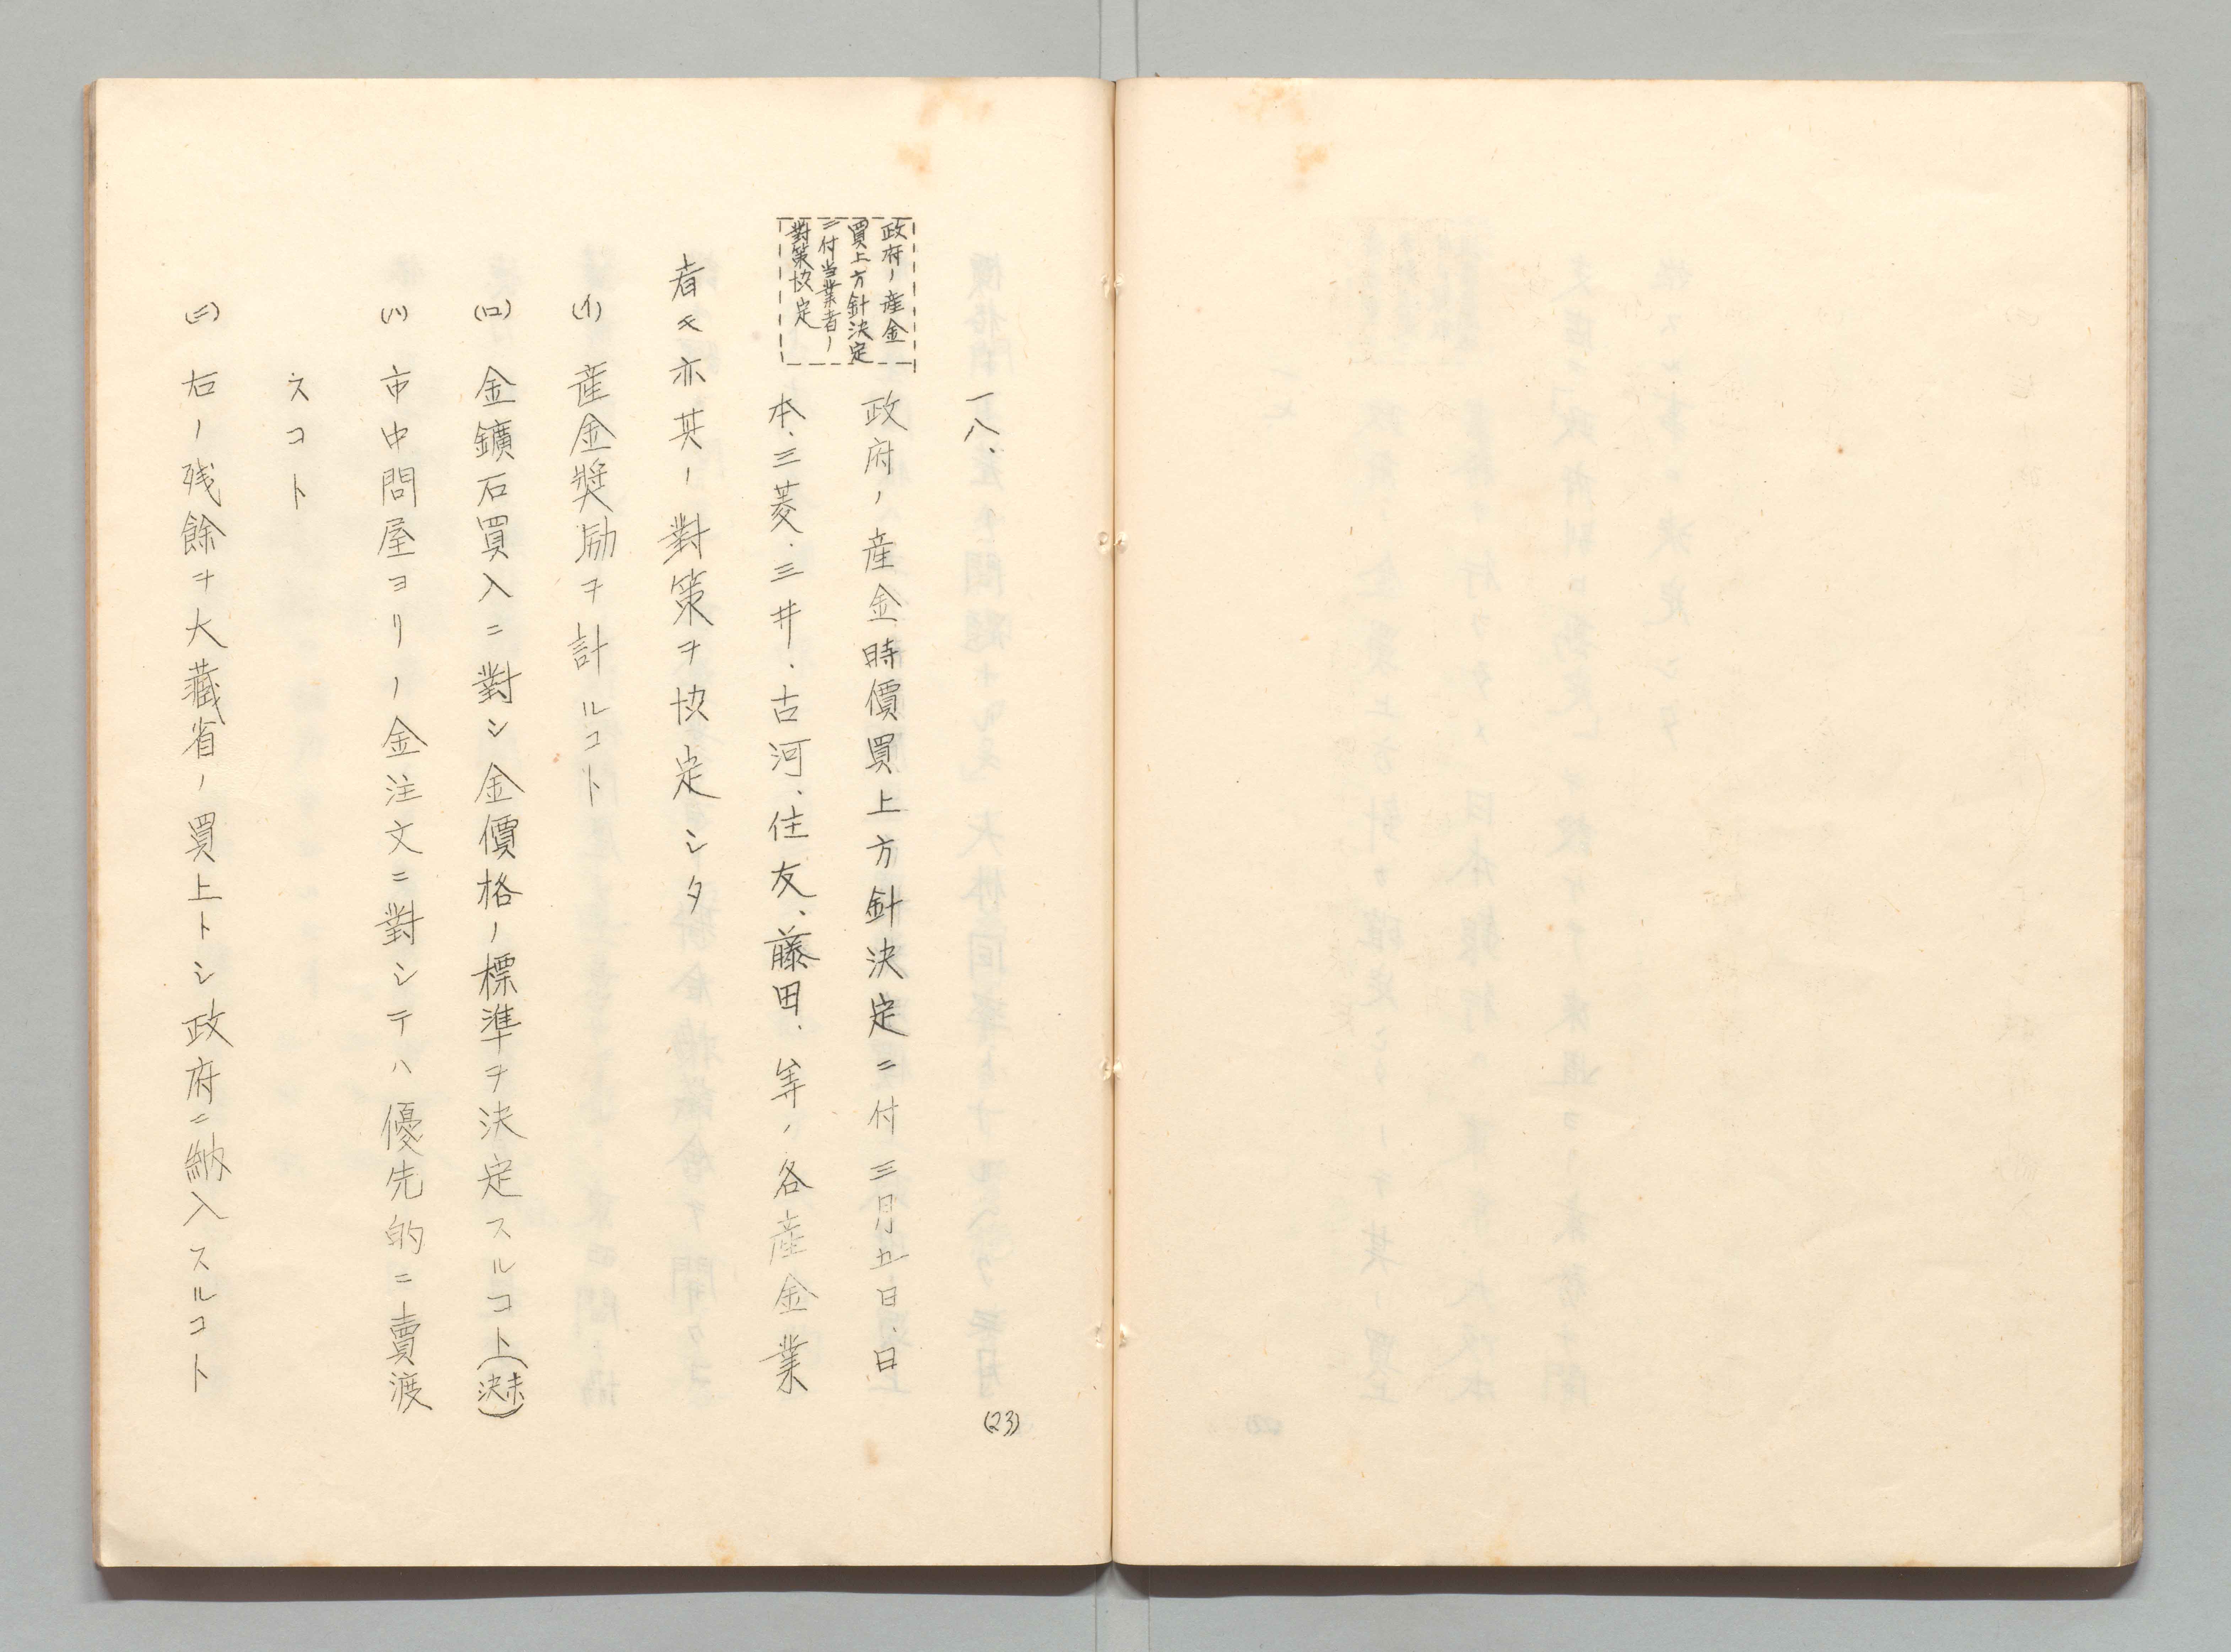 一八、
政府ノ産金
買上方針決定
ニ付当業者ノ
對策協定
政府ノ産金時價買上方針決定ニ付三月五日、日
本、三菱、三井、古河、住友、藤田、等ノ各産金業
者モ亦其ノ對策ヲ協定シタ
(イ) 産金奬励ヲ計ルコト
(ロ) 金鑛石買入ニ對シ金價格ノ標準ヲ決定スルコト(未決)
(ハ) 市中問屋ヨリノ金注文ニ對シテハ優先的ニ賣渡
スコト
(ニ) 右ノ残餘ヲ大藏省ノ買上トシ政府ニ納入スルコト
(23)